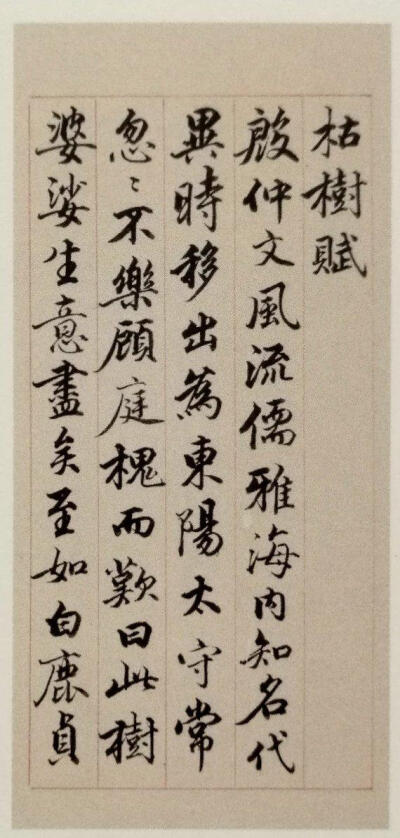 枯樹賦
殷仲文風流儒雅海内知名代
異時移出為東陽太守常
忽〻不樂顧庭槐而歎曰此樹
婆娑生意盡矣至如白鹿貞